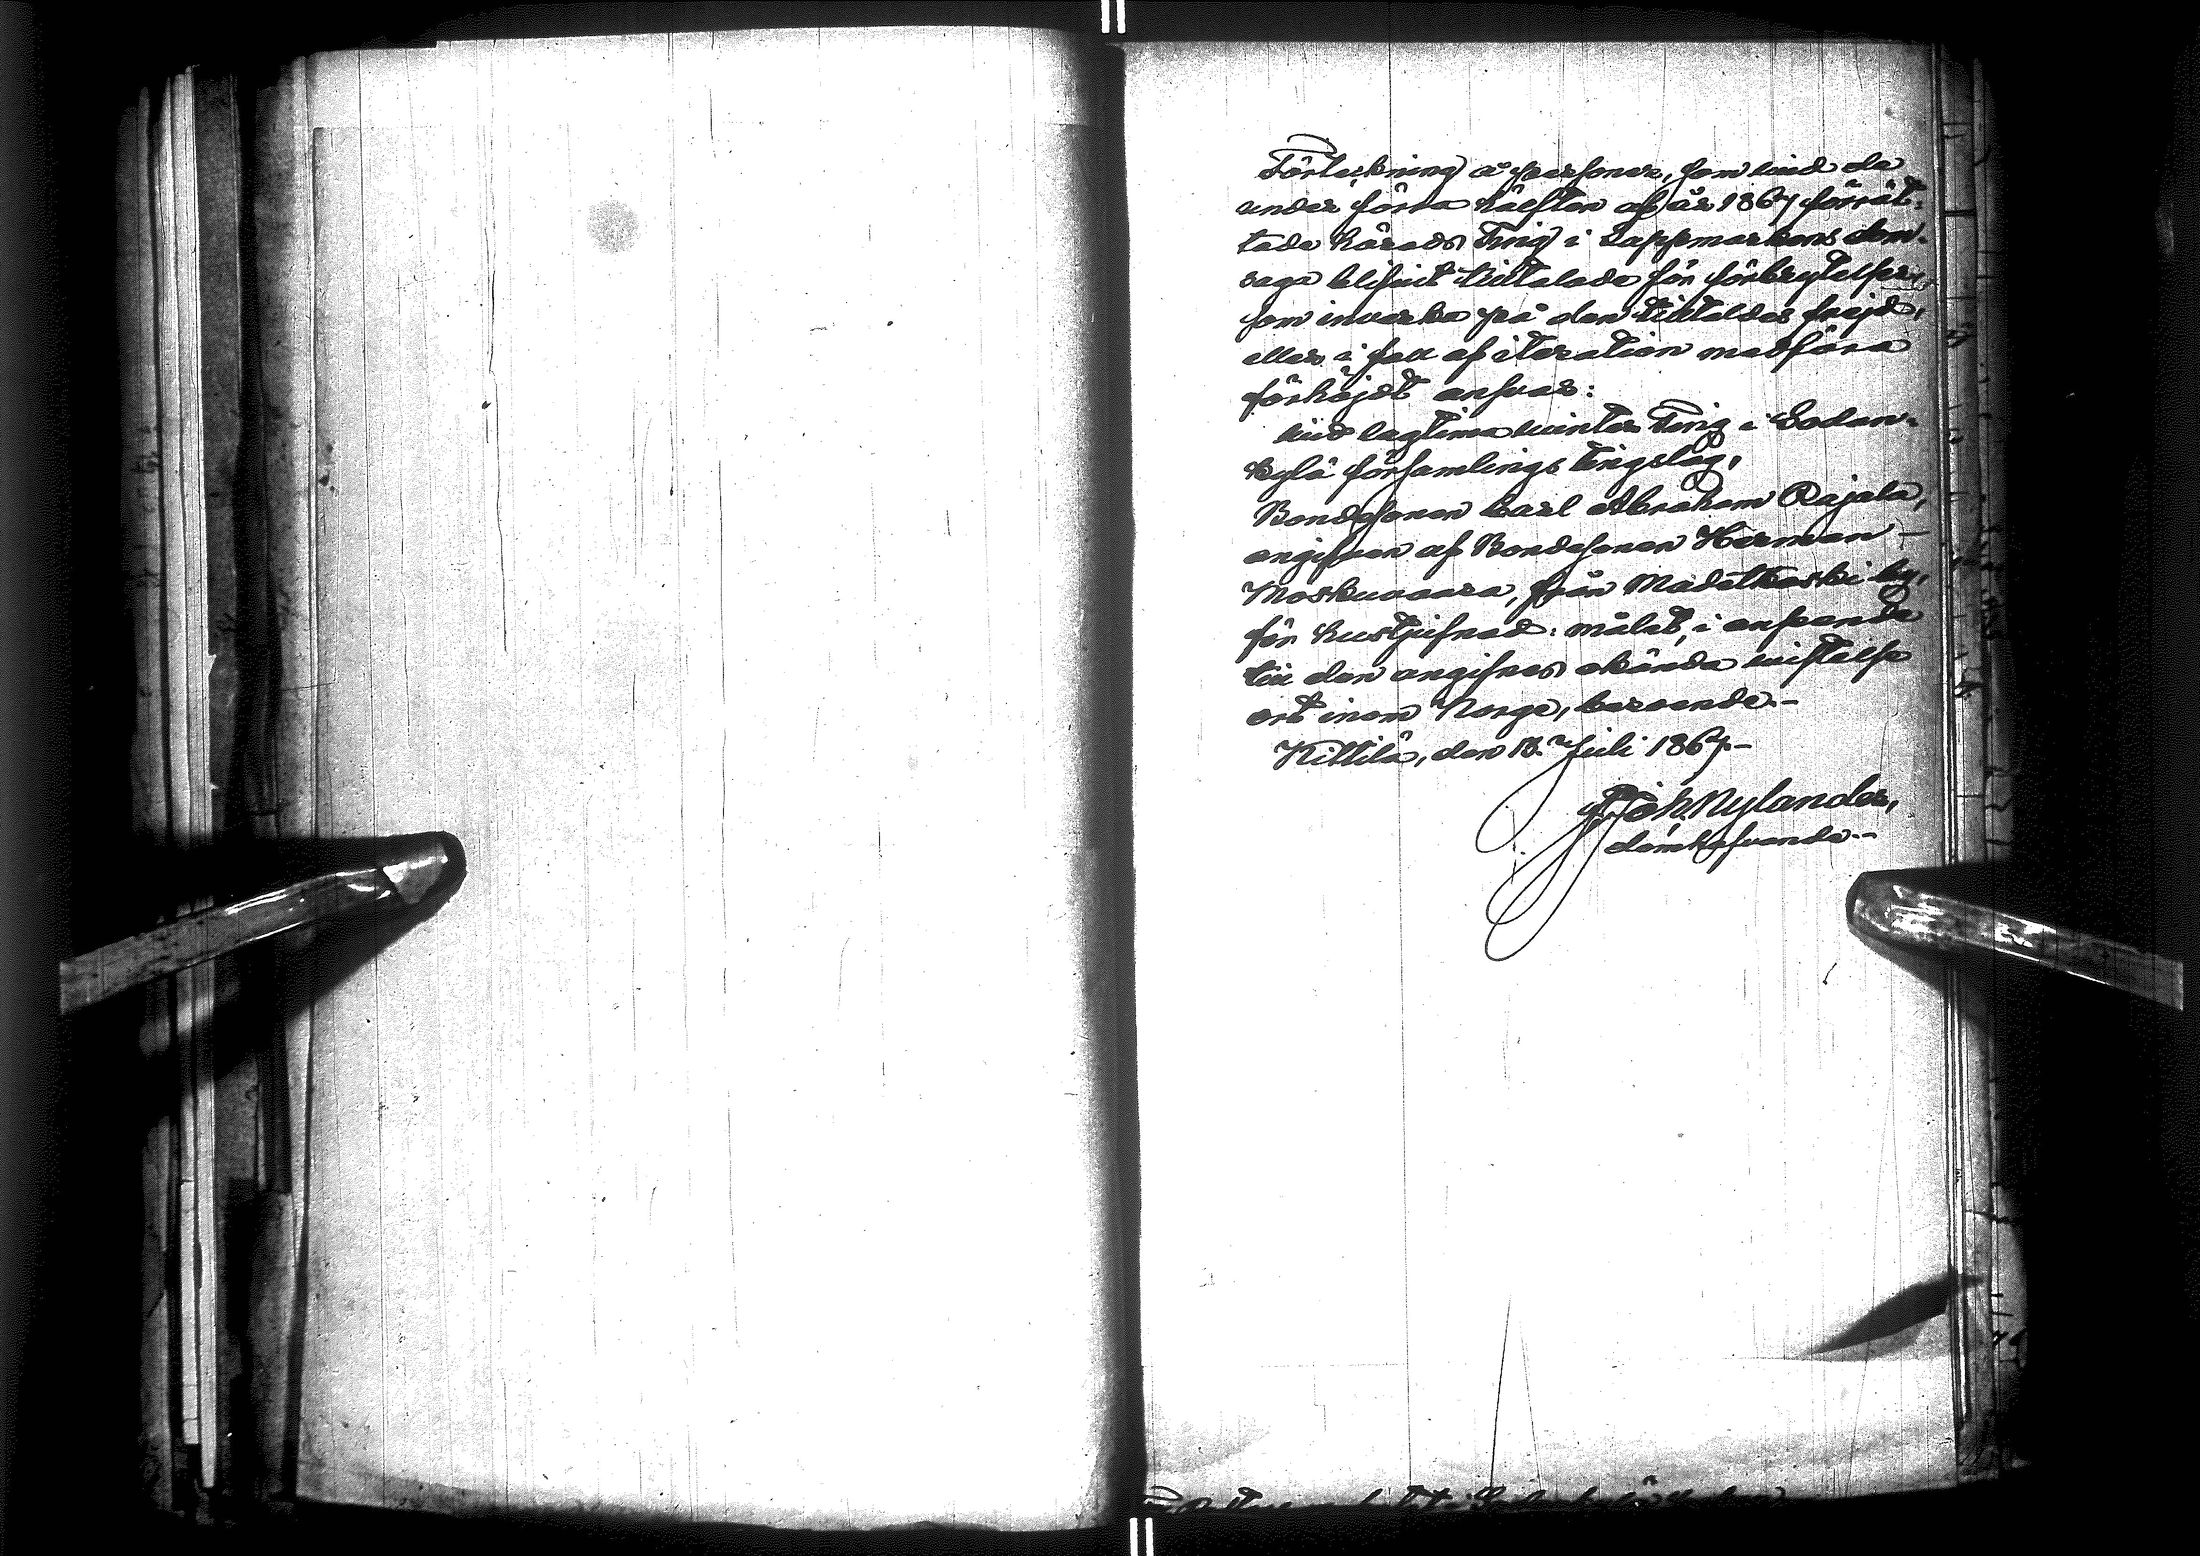 Förteckning å personer, som wid de
under förra hälften af år 1867 förrät-
tade härads Ting i Lappmarkens dom-
saga blifvit tilltalade för förbrytelser,
som inverka på den tilltaldes frejd,
eller i fall af iteration medföra
förhöjdt ansvar:
wid lagtima winter Ting i Sodan-
kylä församlings tingslag,
Bondesonen Carl Abraham Rajala,
angifven af Bondesonen Herman
Moskuvaara, från Madetkoski by,
för hustjufnad: målet, i anseende
till den angifnes okända wistelse
ort inom Norge, beroende.-
Kittilä, den 18. Juli 1867.-
Joh. Nylander,
domhafvande.-